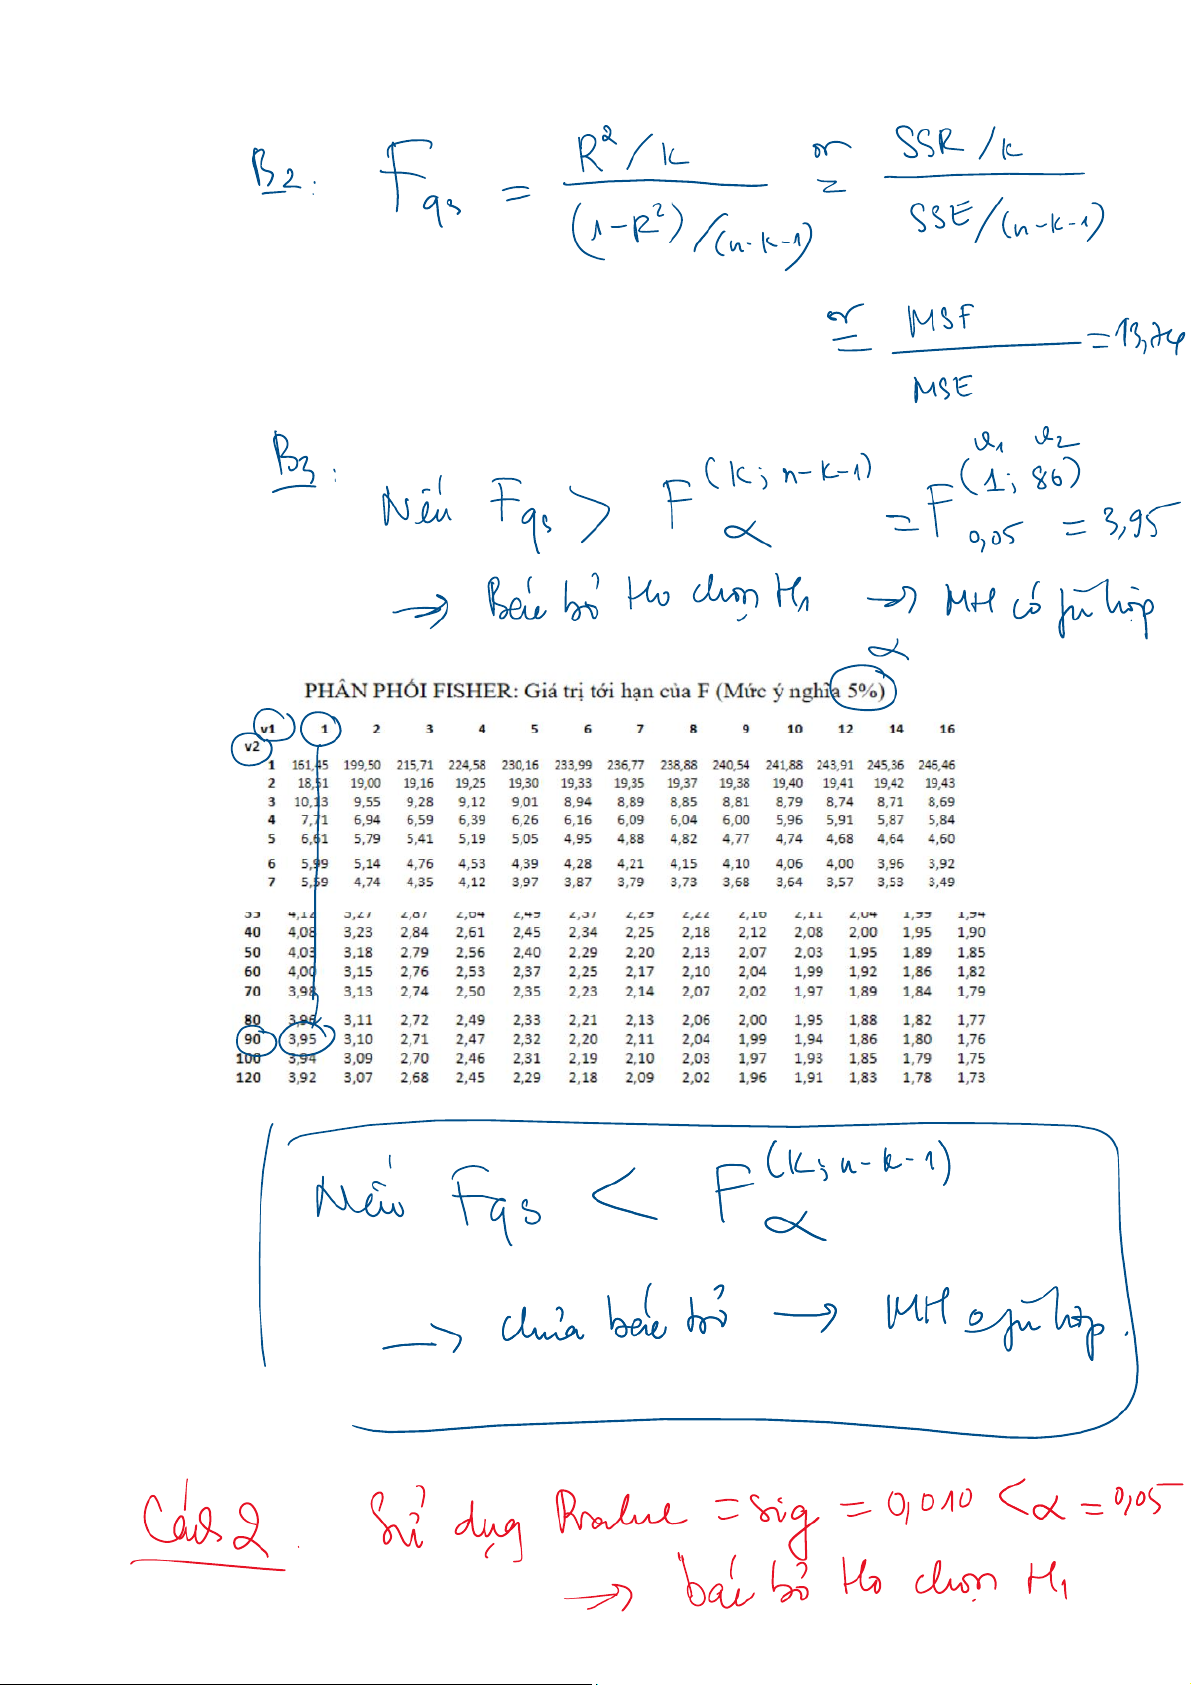 B2: Fqs = R²/k / (1-R²)/(n-k-1) or = SSR/k / SSE/(n-k-1)
or = MSF / MSE = 13,74
B3: Nếu Fqs > F α (k; n-k-1) = F 0,05 (1; 86) = 3,95
v1 v2
→ Bác bỏ Ho chọn H1 → MH có phù hợp
α
PHÂN PHỐI FISHER: Giá trị tới hạn của F (Mức ý nghĩa 5%)
v1 1 2 3 4 5 6 7 8 9 10 12 14 16
v2
1 161,45 199,50 215,71 224,58 230,16 233,99 236,77 238,88 240,54 241,88 243,91 245,36 246,46
2 18,51 19,00 19,16 19,25 19,30 19,33 19,35 19,37 19,38 19,40 19,41 19,42 19,43
3 10,13 9,55 9,28 9,12 9,01 8,94 8,89 8,85 8,81 8,79 8,74 8,71 8,69
4 7,71 6,94 6,59 6,39 6,26 6,16 6,09 6,04 6,00 5,96 5,91 5,87 5,84
5 6,61 5,79 5,41 5,19 5,05 4,95 4,88 4,82 4,77 4,74 4,68 4,64 4,60
6 5,99 5,14 4,76 4,53 4,39 4,28 4,21 4,15 4,10 4,06 4,00 3,96 3,92
7 5,59 4,74 4,35 4,12 3,97 3,87 3,79 3,73 3,68 3,64 3,57 3,53 3,49
35 4,12 3,27 2,87 2,64 2,49 2,37 2,29 2,22 2,16 2,11 2,04 1,99 1,94
40 4,08 3,23 2,84 2,61 2,45 2,34 2,25 2,18 2,12 2,08 2,00 1,95 1,90
50 4,03 3,18 2,79 2,56 2,40 2,29 2,20 2,13 2,07 2,03 1,95 1,89 1,85
60 4,00 3,15 2,76 2,53 2,37 2,25 2,17 2,10 2,04 1,99 1,92 1,86 1,82
70 3,98 3,13 2,74 2,50 2,35 2,23 2,14 2,07 2,02 1,97 1,89 1,84 1,79
80 3,96 3,11 2,72 2,49 2,33 2,21 2,13 2,06 2,00 1,95 1,88 1,82 1,77
90 3,95 3,10 2,71 2,47 2,32 2,20 2,11 2,04 1,99 1,94 1,86 1,80 1,76
100 3,94 3,09 2,70 2,46 2,31 2,19 2,10 2,03 1,97 1,93 1,85 1,79 1,75
120 3,92 3,07 2,68 2,45 2,29 2,18 2,09 2,02 1,96 1,91 1,83 1,78 1,73
Nếu Fqs < F α (k; n-k-1)
→ chưa bác bỏ → MH o phù hợp.
Cách 2. Sử dụng Pvalue = sig = 0,010 < α = 0,05
→ bác bỏ Ho chọn H1